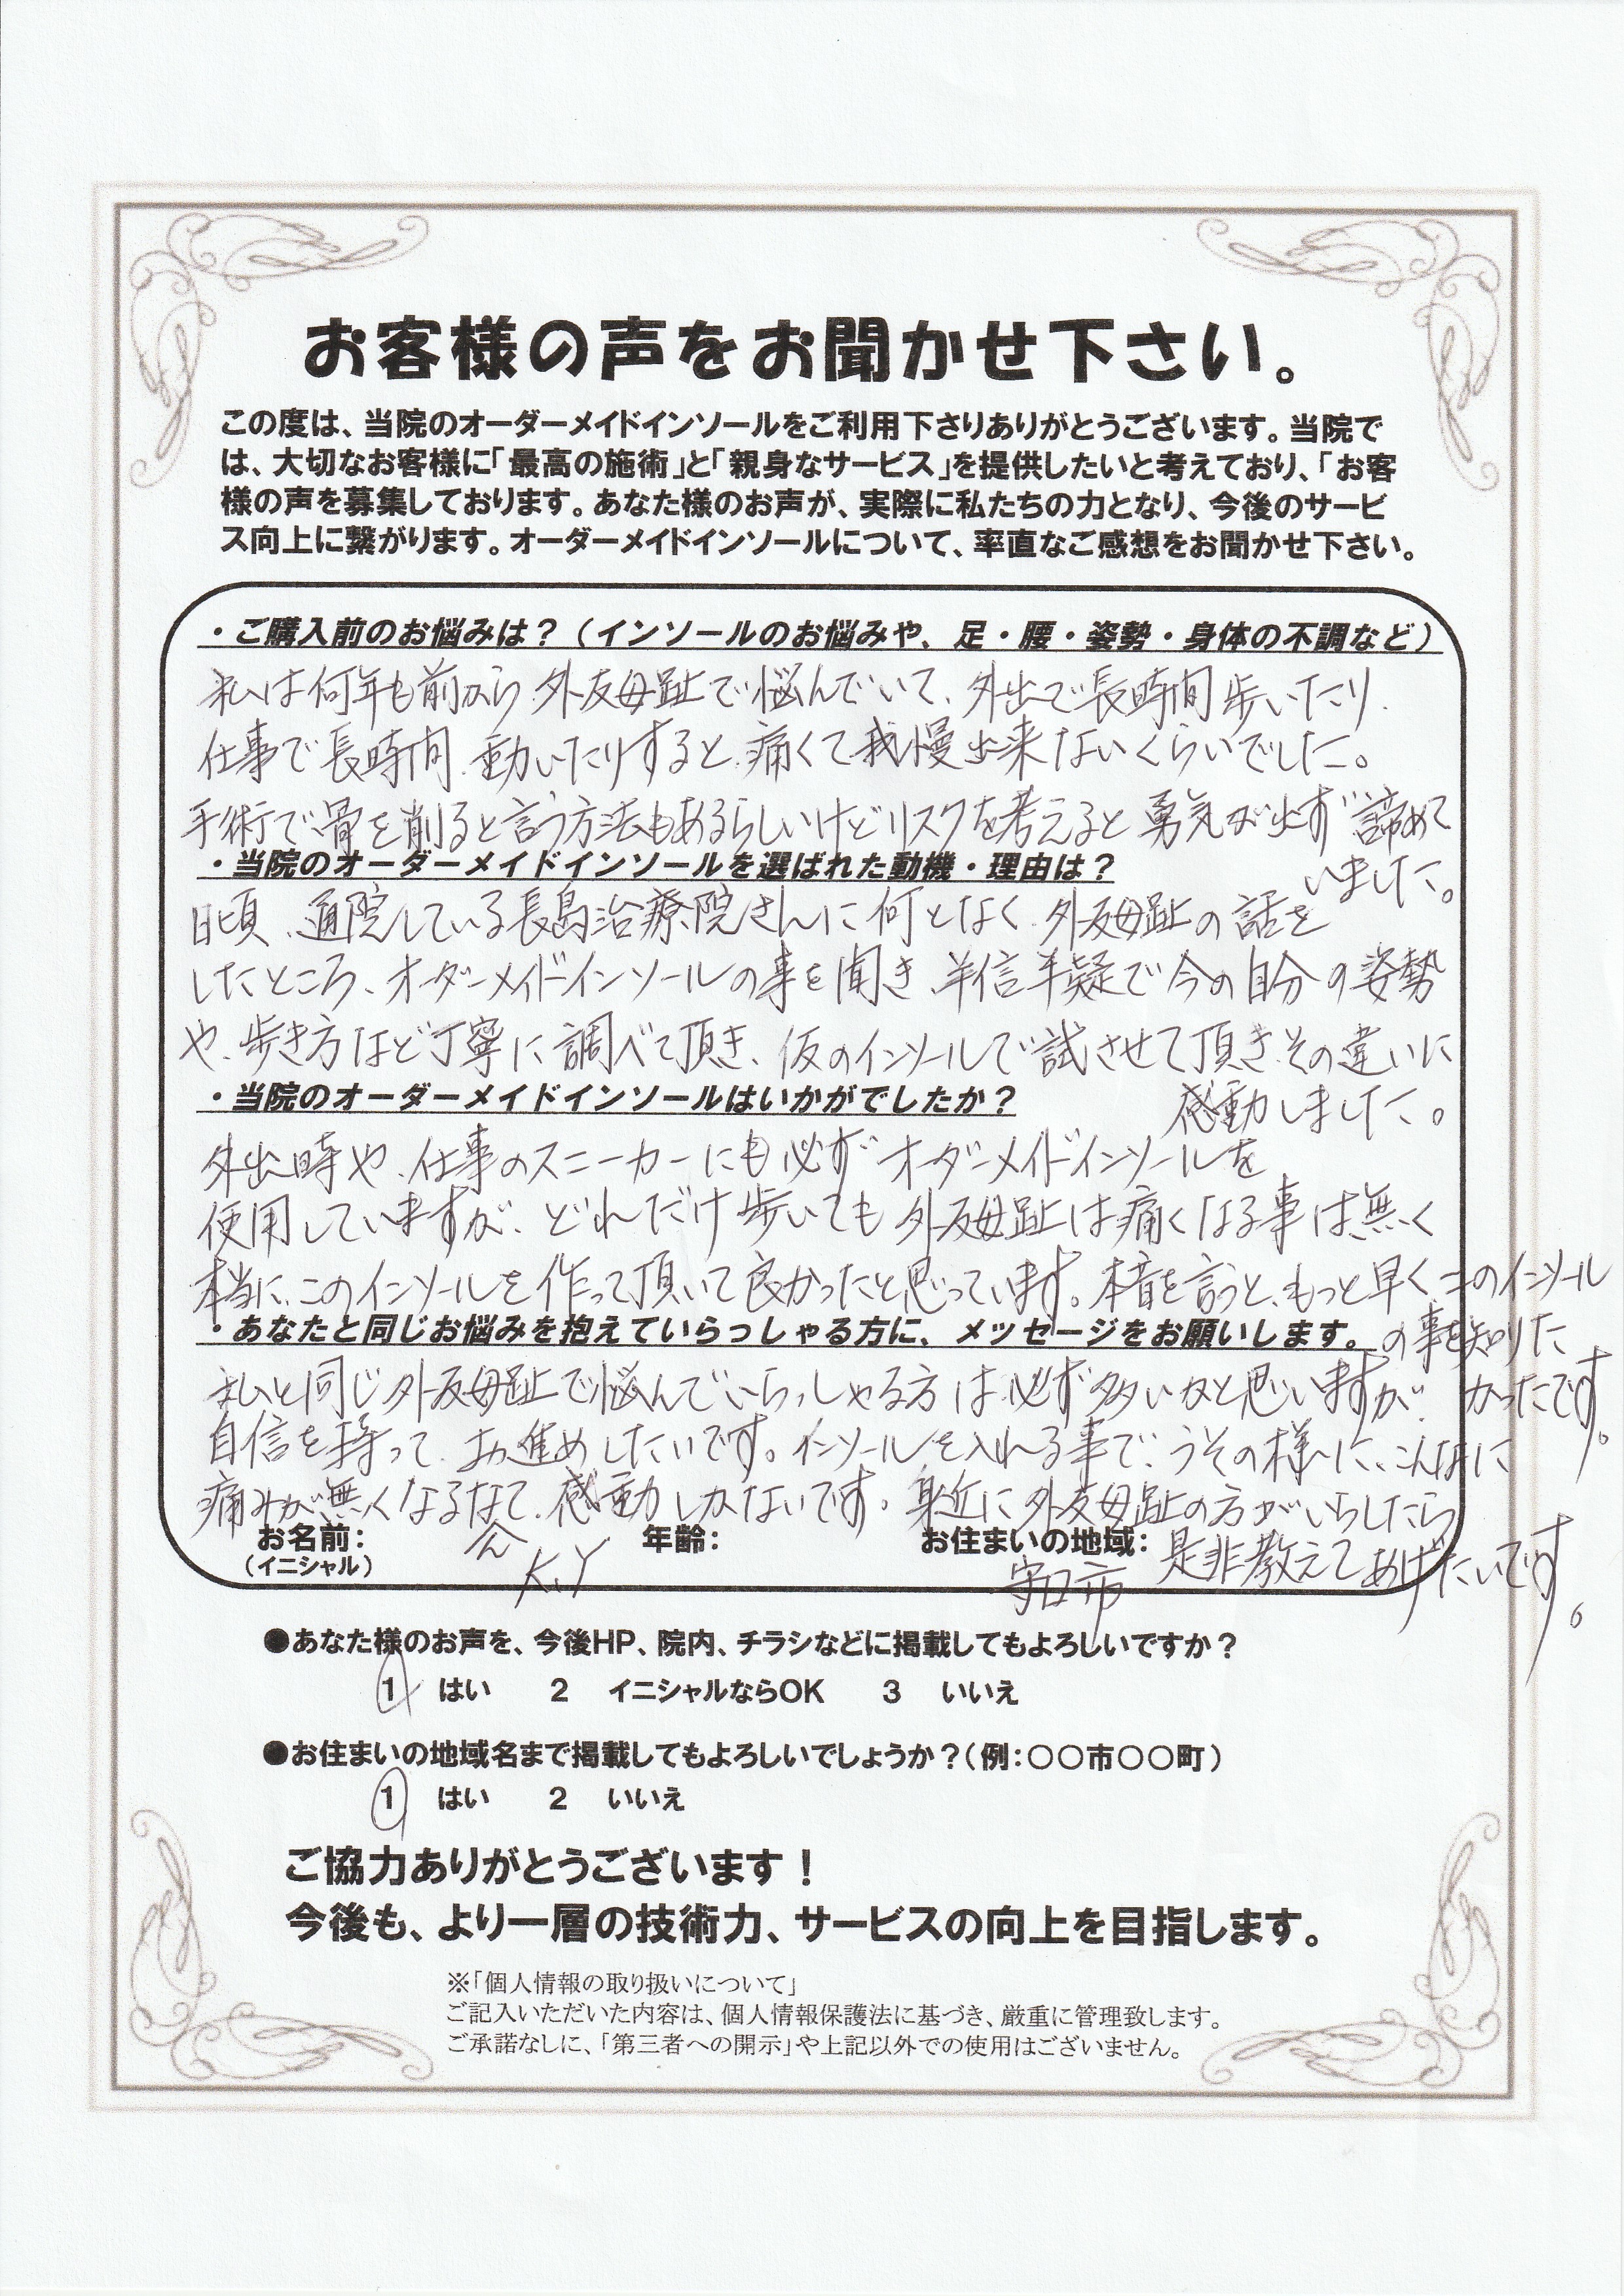 お客様の声をお聞かせ下さい。
この度は、当院のオーダーメイドインソールをご利用下さりありがとうございます。当院で
は、大切なお客様に「最高の施術」と「親身なサービス」を提供したいと考えており、「お客
様の声を募集しております。あなた様のお声が、実際に私たちの力となり、今後のサービ
ス向上に繋がります。オーダーメイドインソールについて、率直なご感想をお聞かせ下さい。
・ご購入前のお悩みは?（インソールのお悩みや、足・腰・姿勢・身体の不調など）
私は何年も前から外反母趾で悩んでいて、外出で長時間歩いたり、
仕事で長時間、動いたりすると、痛くて我慢出来ないくらいでした。
手術で骨を削ると言う方法もあるらしいけどリスクを考えると勇気が出ず諦めて
いました。
・当院のオーダーメイドインソールを選ばれた動機・理由は?
日頃、通院している長島治療院さんに何となく、外反母趾の話を
したところ、オーダーメイドインソールの事を聞き、半信半疑で今の自分の姿勢
や、歩き方など丁寧に調べて頂き、仮のインソールで試させて頂き、その違いに
感動しました。
・当院のオーダーメイドインソールはいかがでしたか?
外出時や、仕事のスニーカーにも必ずオーダーメイドインソールを
使用していますが、どれだけ歩いても外反母趾は痛くなる事は無く
本当に、このインソールを作って頂いて良かったと思っています。本音を言うと、もっと早く、このインソール
の事を知りた
かったです。
・あなたと同じお悩みを抱えていらっしゃる方に、メッセージをお願いします。
私と同じ外反母趾で悩んでいらっしゃる方は必ず多いかと思いますが、
自信を持って、お進めしたいです。インソールを入れる事で、うその様に、こんなに
痛みが無くなるなて、感動しかないです。身近に外反母趾の方がいらしたら
ん
是非教えてあげたいです。
お名前: K.Y 年齢: お住まいの地域: 守口市
（イニシャル）
●あなた様のお声を、今後HP、院内、チラシなどに掲載してもよろしいですか?
1 はい 2 イニシャルならOK 3 いいえ
●お住まいの地域名まで掲載してもよろしいでしょうか?（例:○○市○○町）
1 はい 2 いいえ
ご協力ありがとうございます!
今後も、より一層の技術力、サービスの向上を目指します。
※「個人情報の取り扱いについて」
ご記入いただいた内容は、個人情報保護法に基づき、厳重に管理致します。
ご承諾なしに、「第三者への開示」や上記以外での使用はございません。